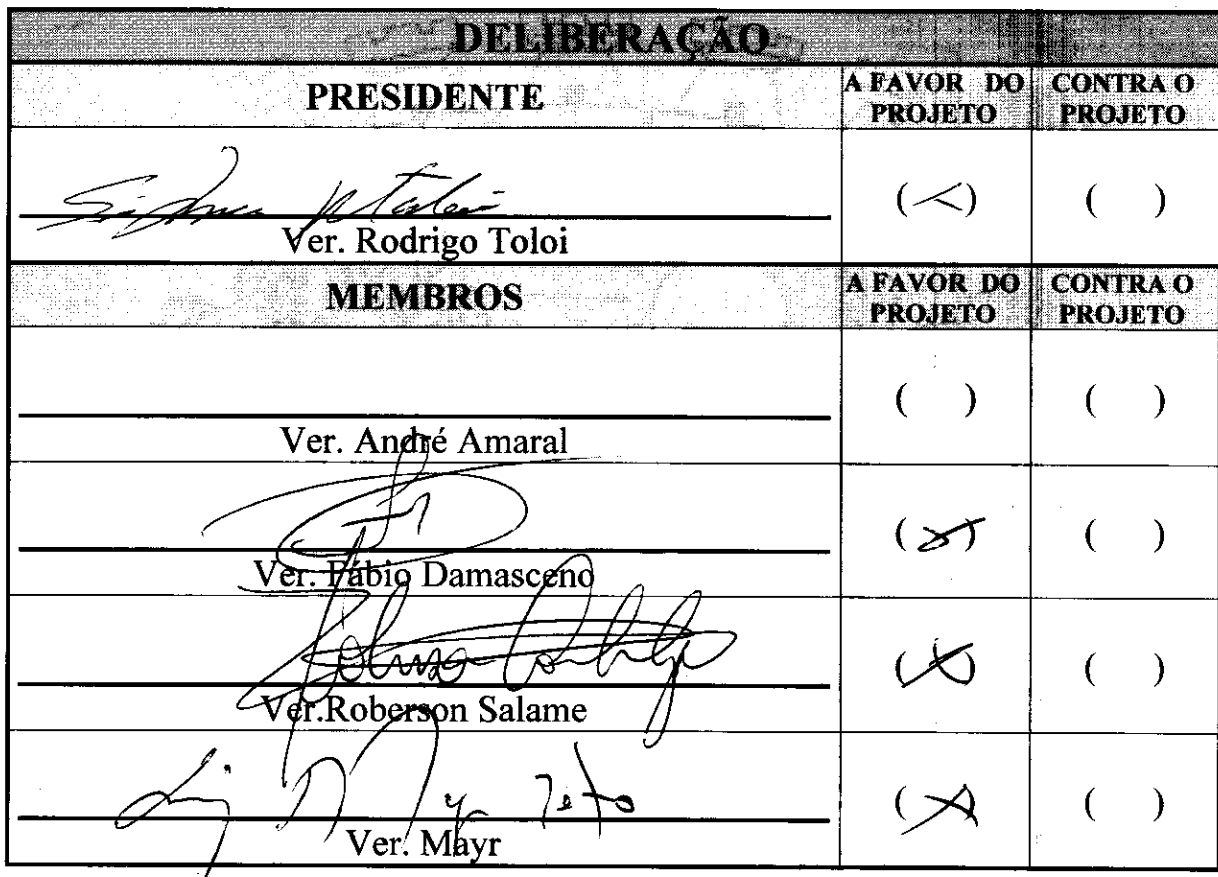 DELIBERAÇÃO
PRESIDENTE
A FAVOR DO PROJETO
CONTRA O PROJETO
( ) ( )
Ver. Rodrigo Toloi
MEMBROS
A FAVOR DO PROJETO
CONTRA O PROJETO
( ) ( )
Ver. André Amaral
( ) ( )
Ver. Fábio Damasceno
( ) ( )
Ver.Roberson Salame
( ) ( )
Ver. Mayr